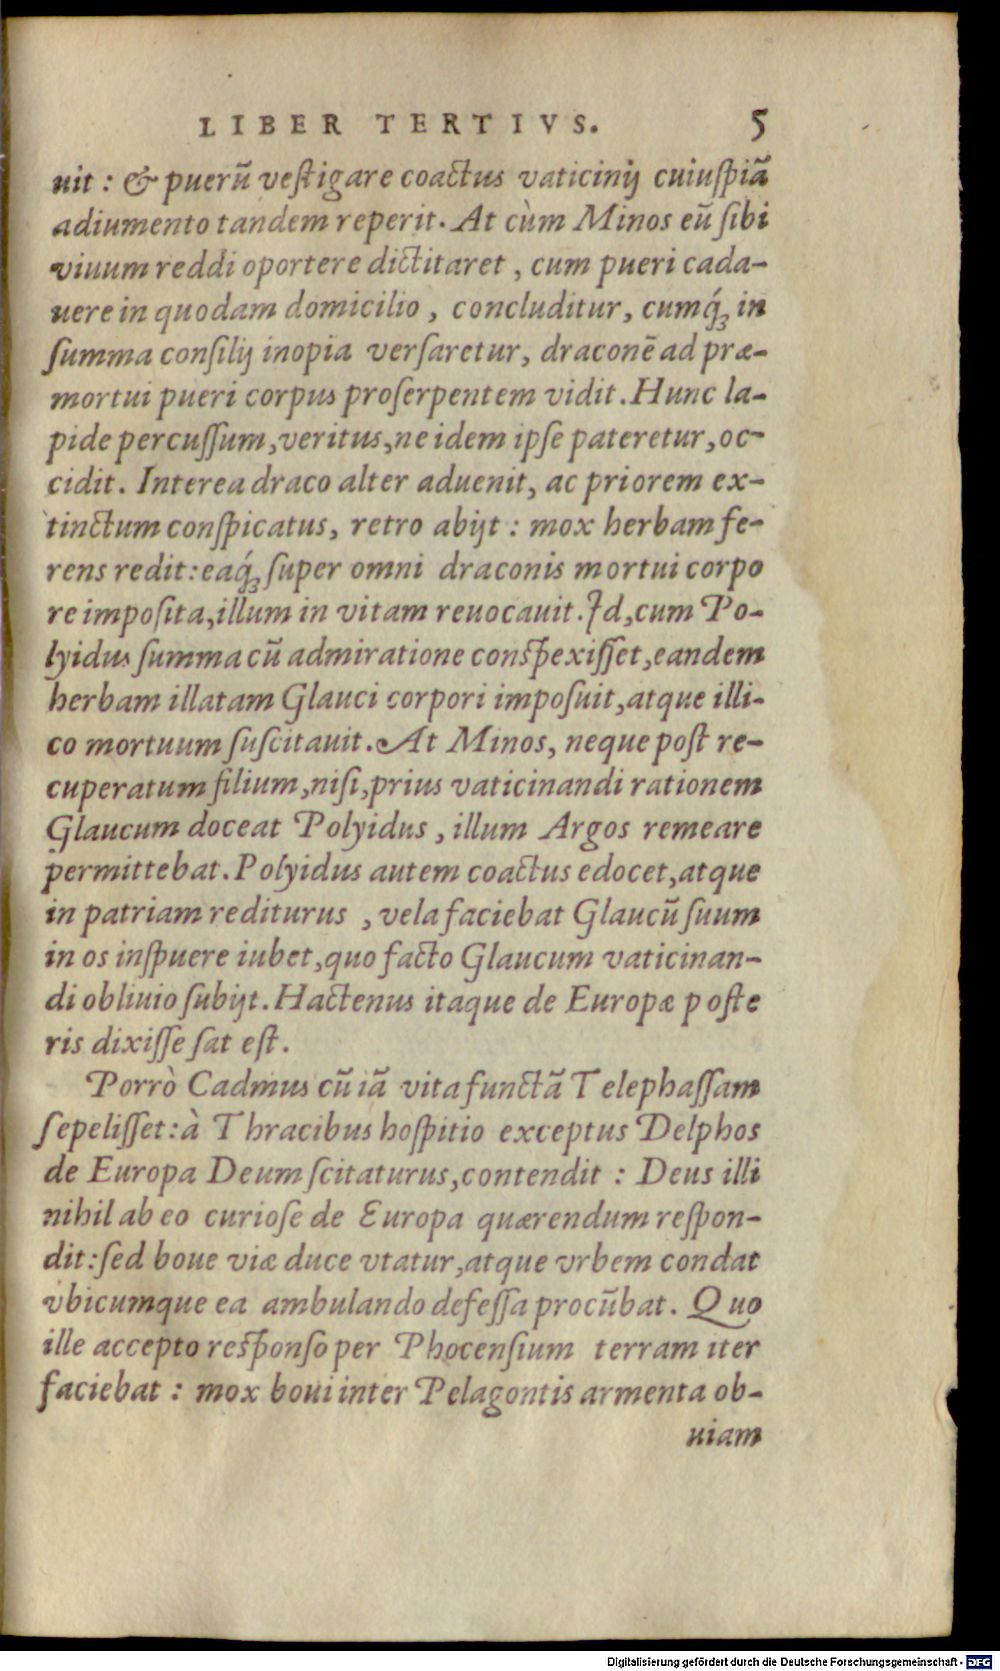 LIBER TERTIVS. 5
uit: & puerū vestigare coactus vaticinij cuiuspiā
adiumento tandem reperit. At cùm Minos eū sibi
viuum reddi oportere dictitaret, cum pueri cada-
uere in quodam domicilio, concluditur, cumq́ꝫ in
summa consilij inopia versaretur, draconē ad præ-
mortui pueri corpus proserpentem vidit. Hunc la-
pide percussum, veritus, ne idem ipse pateretur, oc-
cidit. Interea draco alter aduenit, ac priorem ex-
tinctum conspicatus, retro abijt: mox herbam fe-
rens redit: eaq́ꝫ super omni draconis mortui corpo
re imposita, illum in vitam reuocauit. Id, cum Po-
lyidus summa cū admiratione conspexisset, eandem
herbam illatam Glauci corpori imposuit, atque illi-
co mortuum suscitauit. At Minos, neque post re-
cuperatum filium, nisi, prius vaticinandi rationem
Glaucum doceat Polyidus, illum Argos remeare
permittebat. Polyidus autem coactus edocet, atque
in patriam rediturus, vela faciebat Glaucū suum
in os inspuere iubet, quo facto Glaucum vaticinan-
di obliuio subijt. Hactenus itaque de Europæ poste
ris dixisse sat est.
Porrò Cadmus cū iā vita functā Telephassam
sepelisset: à Thracibus hospitio exceptus Delphos
de Europa Deum scitaturus, contendit: Deus illi
nihil ab eo curiose de Europa quærendum respon-
dit: sed boue viæ duce vtatur, atque vrbem condat
vbicumque ea ambulando defessa procūbat. Quo
ille accepto responso per Phocensium terram iter
faciebat: mox boui inter Pelagontis armenta ob-
uiam
Digitalisierung gefördert durch die Deutsche Forschungsgemeinschaft - DFG